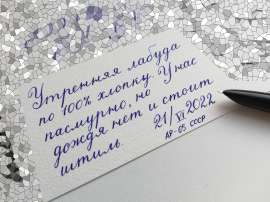 Утренняя лабуда
по 100% хлопку. У нас
пасмурно, но
дождя нет и стоит
штиль.
21/VI 2022
АР-05 СССР